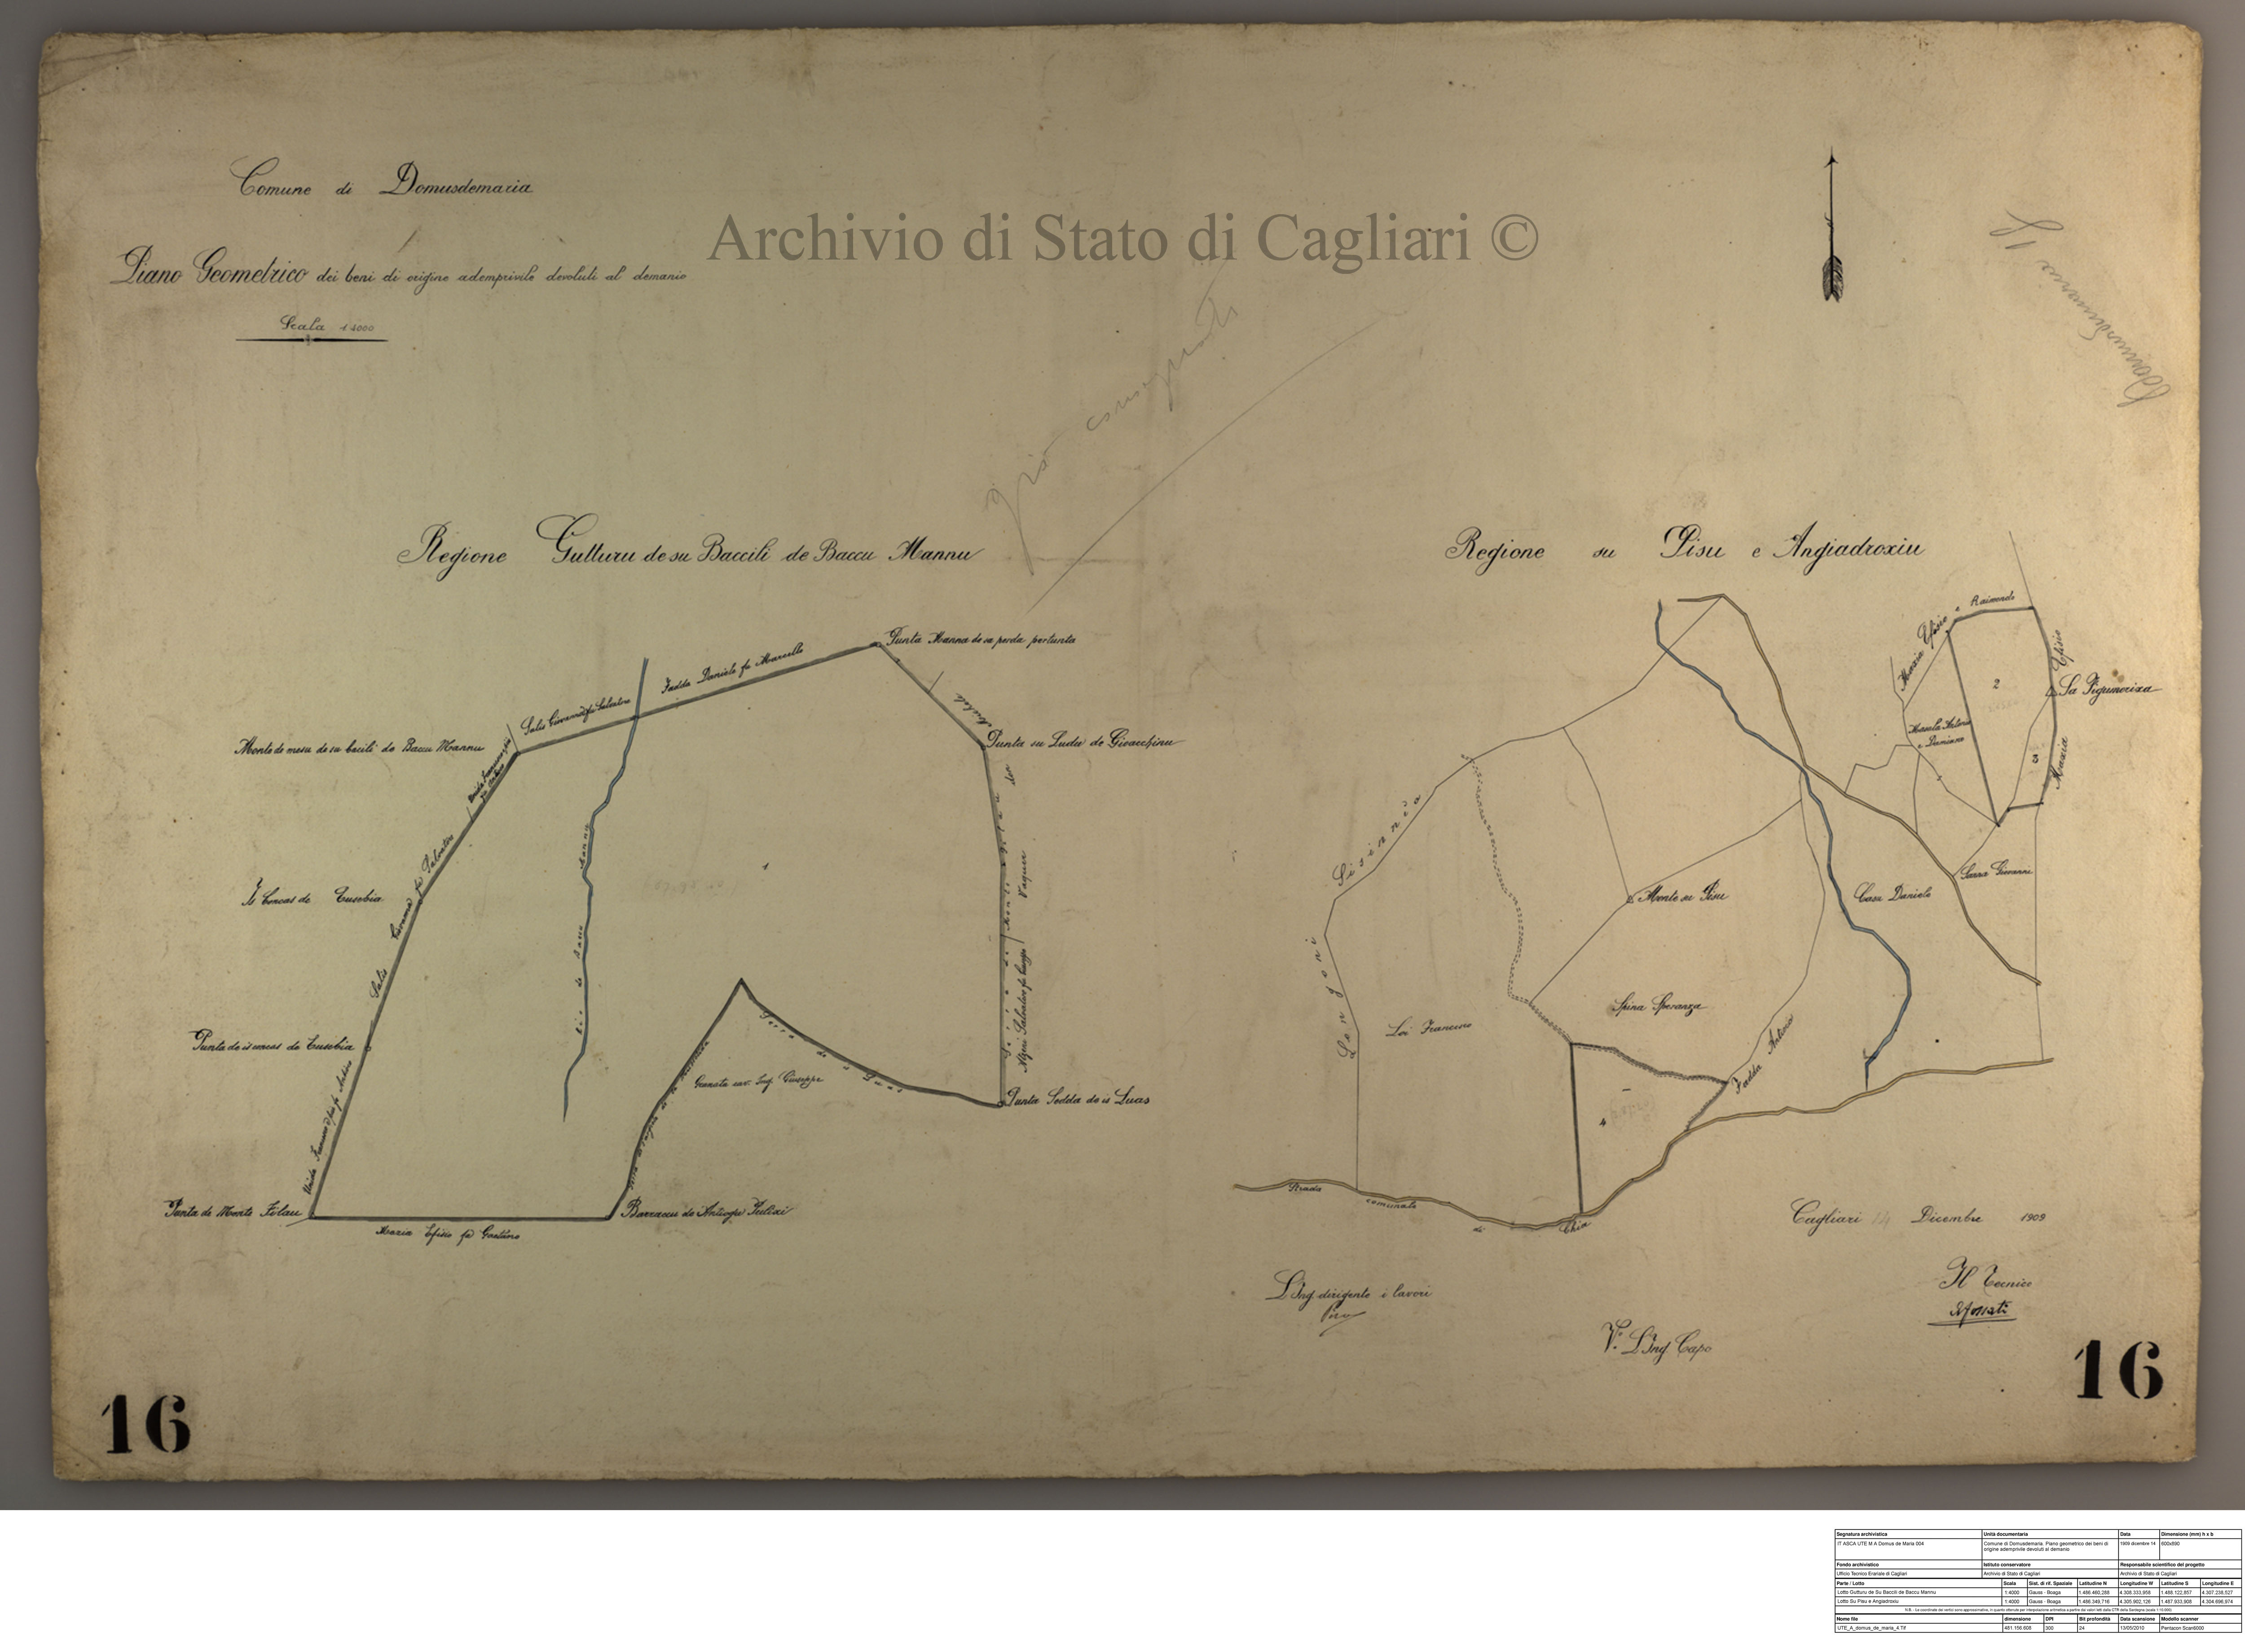 Comune di Domusdemaria
Archivio di Stato di Cagliari ©
Piano Geometrico dei beni di origine ademprivile devoluti al demanio
Scala 1 4000
Domusdemaria
già consegnato
Regione Gutturu de su Baccili de Baccu Mannu
Regione su Pisu e Angiadroxiu
Punta Manna de sa perda pertunta
Fadda Daniele fu Marcello
Salis Giovanni fu Salvatore
Monte de mesu de su bacili de Baccu Mannu
Punta su Ludu de Gioacchinu
Is Concas de Eusebia
Salis Giovanni fu Salvatore
Punta de is concas de Eusebia
Rio de Baccu Mannu
1
Agni Salvatore fu Luigi
Vaquer
Granata cav. Ing. Giuseppe
Serra de is Luas
Punta Sedda de is Luas
Punta de Monte Filau
Barraccu de Antiogu Pulixi
Maxia Efisio fu Gaetano
Maxia Efisio e Raimondo
Maxia Efisio
2
Sa Pigumerixa
3
Serra Giovanni
Casu Daniele
Monte su Pisu
Longoni Sisinnio
Loi Francesco
Spina Speranza
Fadda Antonio
4
Strada comunale di Chia
Cagliari 14 Dicembre 1909
Il Tecnico
L'Ing dirigente i lavori
V.° L'Ing Capo
16
16
Segnatura archivistica Unità documentaria Data Dimensione (mm) h x b
IT ASCA UTE M A Domus de Maria 004 Comune di Domusdemaria. Piano geometrico dei beni di origine ademprivile devoluti al demanio 1909 dicembre 14 600x890
Fondo archivistico Istituto conservatore Responsabile scientifico del progetto
Ufficio Tecnico Erariale di Cagliari Archivio di Stato di Cagliari Archivio di Stato di Cagliari
Parte / Lotto Scala Sist. di rif. Spaziale Latitudine N Longitudine W Latitudine S Longitudine E
Lotto Gutturu de Su Baccili de Baccu Mannu 1:4000 Gauss - Boaga 1.486.460,288 4.308.333,958 1.488.122,857 4.307.238,527
Lotto Su Pisu e Angiadroxiu 1:4000 Gauss - Boaga 1.486.349,716 4.305.902,126 1.487.933,908 4.304.696,974
Nome file dimensione DPI Bit profondità Data scansione Modello scanner
UTE_A_domus_de_maria_4.Tif 481.156.608 300 24 13/05/2010 Pentacon Scan6000